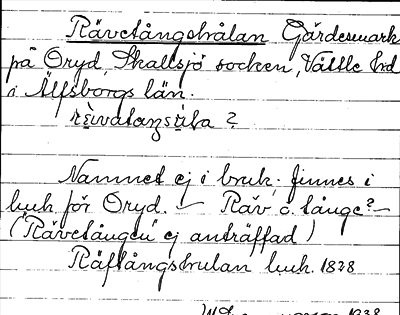 Rävetångshålan Gärdesmark
på Oryd, Skallsjö socken, Vättle hd
i Älfsborgs län.
?
Namnet ej i bruk; finnes i
luuk. för Oryd. — Räv o. tånge? —
("Rävetången" ej anträffad)
Räftångshulan luuk. 1828